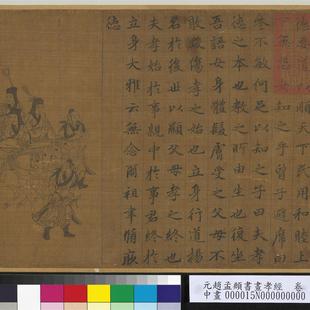 德要道以順天下民用和睦上
下無怨女知之乎曾子避席曰
參不敏何足以知之子曰夫孝
德之本也教之所由生也復坐
吾語女身體髮膚受之父母不
敢毀傷孝之始也立身行道揚
名於後世以顯父母孝之終也
夫孝始於事親中於事君終於
立身大雅云無念爾祖聿脩厥
德
元趙孟頫書畫孝經 卷
中畫 000015N000000000